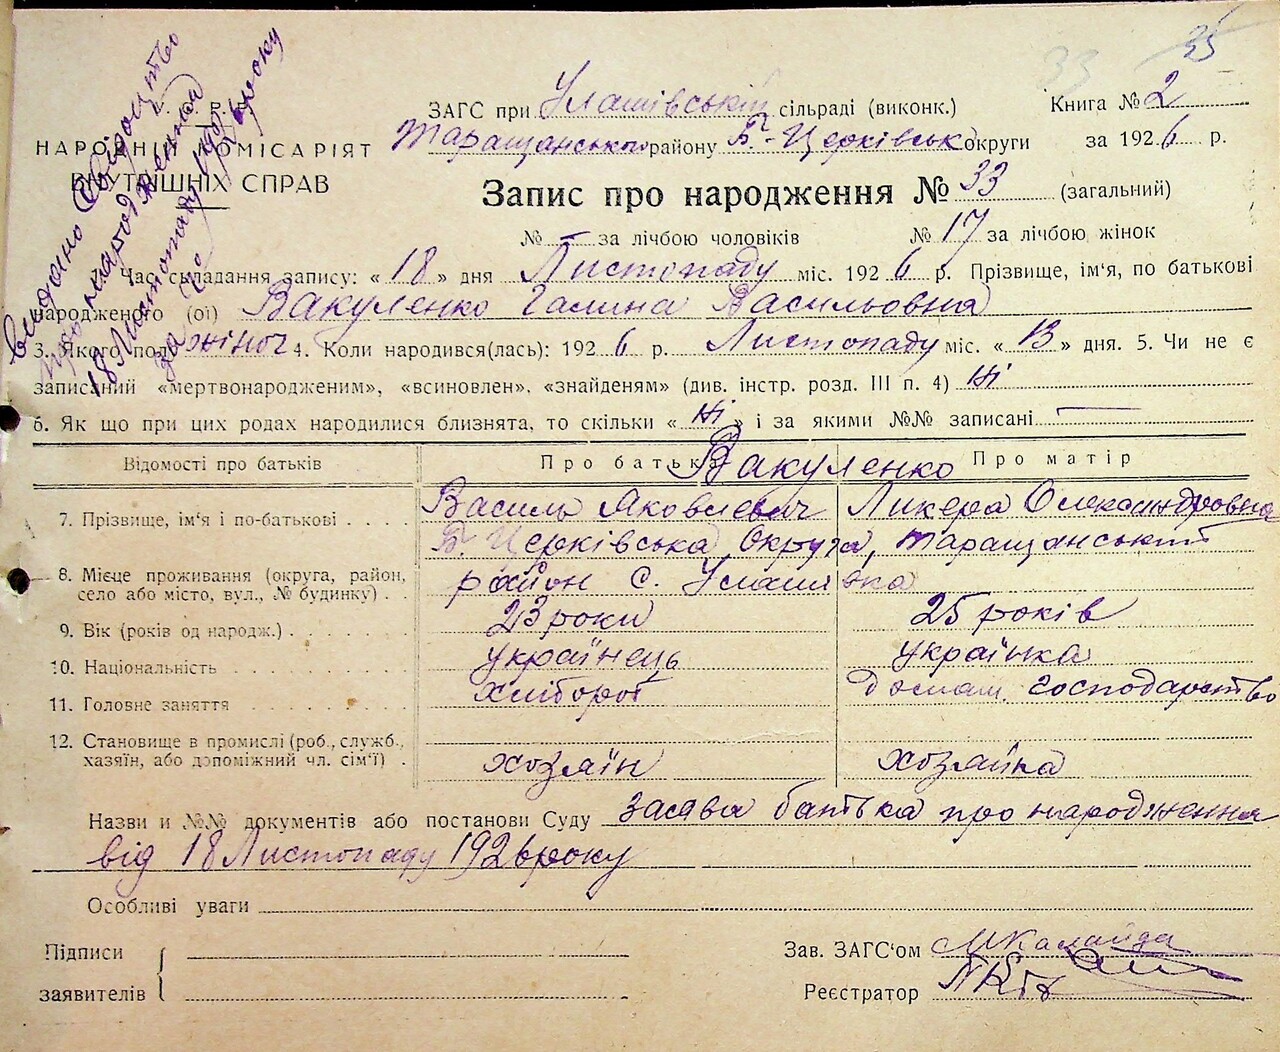 33 35
видано свідоцтво
про народження
18 Листопаду 1926 року
за №
У. С. Р. Р.
НАРОДНІЙ КОМІСАРІЯТ
ВНУТРІШНІХ СПРАВ
ЗАГС при Улашівській сільраді (виконк.) Книга № 2
Таращанського району Б-Церківськ округи за 1926 р.
Запис про народження № 33 (загальний)
№ — за лічбою чоловіків № 17 за лічбою жінок
Час складання запису: « 18 » дня Листопаду міс. 1926 р. Прізвище, ім'я, по батькові
народженого (ої) Вакуленко Галина Васильовна
3. Якого полу жіноч 4. Коли народився(лась): 1926 р. Листопаду міс. « 13 » дня. 5. Чи не є
записаний «мертвонародженим», «всиновлен», «знайденям» (див. інстр. розд. III п. 4) Ні
6. Як що при цих родах народилися близнята, то скільки « Ні » і за якими №№ записані —
Відомості про батьків Про батька Про матір
Вакуленко
7. Прізвище, ім'я і по-батькові Василь Яковлевич Ликера Олександровна
Б. Церківська Округа, Таращанський
8. Місце проживання (округа, район, район с. Улашівка
село або місто, вул., № будинку)
9. Вік (років од народж.) 23 роки 25 років
10. Національність українець українка
11. Головне заняття хлібороб домаш. господарство
12. Становище в промислі (роб., служб.,
хазяїн, або допоміжний чл. сім'ї) хозяїн хозяйка
Назви и №№ документів або постанови Суду заява батька про народження
від 18 Листопаду 1926 року
Особливі уваги
Підписи Зав. ЗАГС'ом МКалайда
заявителів Реєстратор